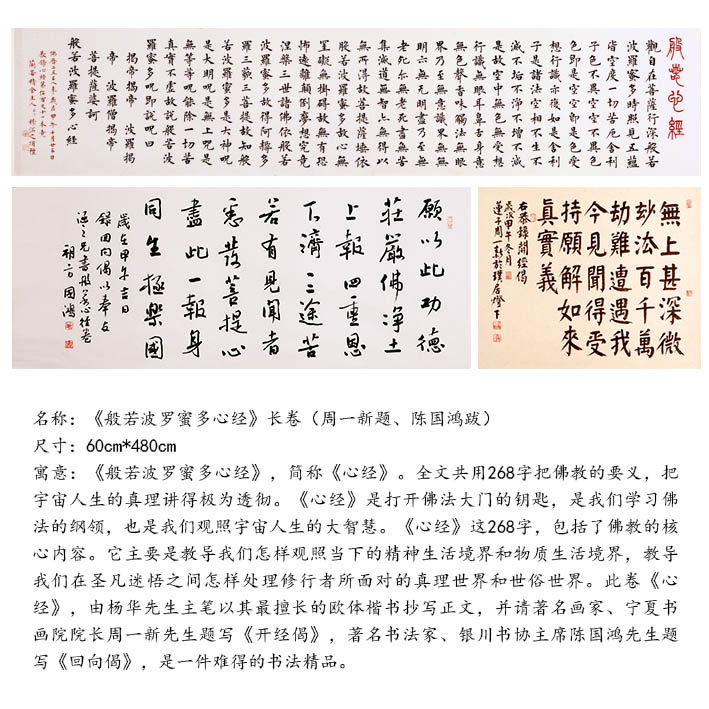 般若心經
觀自在菩薩行深般若
波羅蜜多時照見五蘊
皆空度一切苦厄舍利
子色不異空空不異色
色即是空空即是色受
想行識亦復如是舍利
子是諸法空相不生不
滅不垢不淨不增不減
是故空中無色無受想
行識無眼耳鼻舌身意
無色聲香味觸法無眼
界乃至無意識界無無
明亦無無明盡乃至無
老死亦無老死盡無苦
集滅道無智亦無得以
無所得故菩提薩埵依
般若波羅蜜多故心無
罣礙無罣礙故無有恐
怖遠離顛倒夢想究竟
涅槃三世諸佛依般若
波羅蜜多故得阿耨多
羅三藐三菩提故知般
若波羅蜜多是大神呪
是大明呪是無上呪是
無等等呪能除一切苦
真實不虛故說般若波
羅蜜多呪即說呪曰
揭帝揭帝 波羅揭
帝 波羅僧揭帝
菩提薩婆訶
般若波羅蜜多心經
願以此功德
莊嚴佛淨土
上報四重恩
下濟三途苦
若有見聞者
悉發菩提心
盡此一報身
同生極樂國
歲在甲午吉日
錄回向偈以奉
之兄書般若心經卷
國鴻
無上甚深微
妙法百千萬
劫難遭遇我
今見聞得受
持願解如來
真實義
右恭錄開經偈
歲次甲午冬月
蓮子周一新於璞居燈下
名称：《般若波罗蜜多心经》长卷（周一新题、陈国鸿跋）
尺寸：60cm*480cm
寓意：《般若波罗蜜多心经》，简称《心经》。全文共用268字把佛教的要义，把
宇宙人生的真理讲得极为透彻。《心经》是打开佛法大门的钥匙，是我们学习佛
法的纲领，也是我们观照宇宙人生的大智慧。《心经》这268字，包括了佛教的核
心内容。它主要是教导我们怎样观照当下的精神生活境界和物质生活境界，教导
我们在圣凡迷悟之间怎样处理修行者所面对的真理世界和世俗世界。此卷《心
经》，由杨华先生主笔以其最擅长的欧体楷书抄写正文，并请著名画家、宁夏书
画院院长周一新先生题写《开经偈》，著名书法家、银川书协主席陈国鸿先生题
写《回向偈》，是一件难得的书法精品。